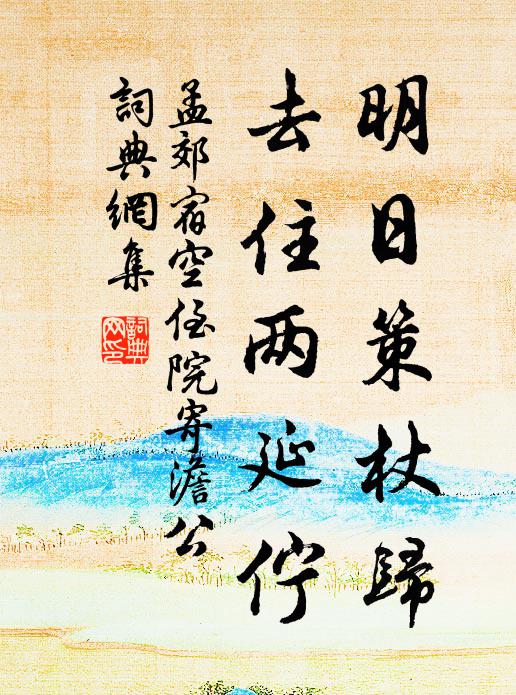 明日策杖歸
去住两延佇
孟郊宿空侄院寄澹公
詞典網集
詞典
网印